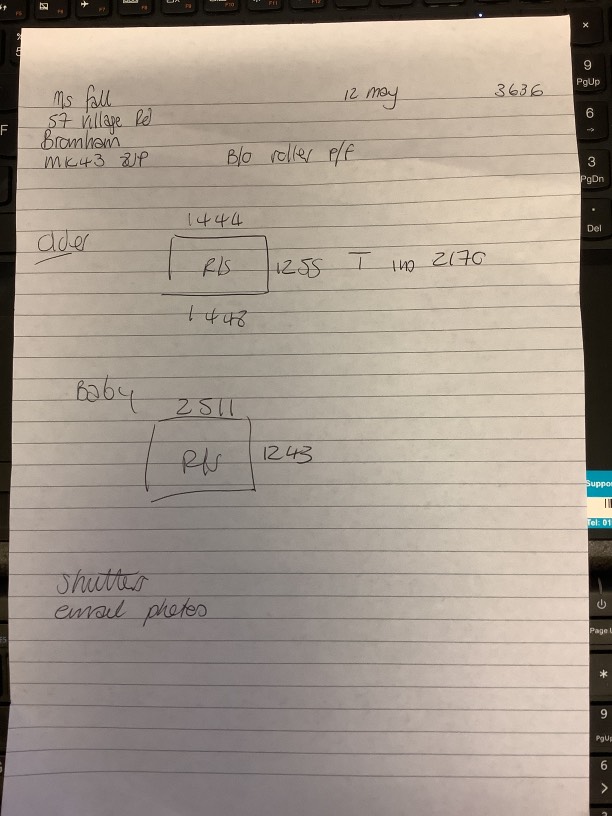 Ms Fall 12 may 3636
57 village Rd
Bromham
MK43 B/o roller P/F
1444
R/S 1255 T 2170
1448
Baby
2511
1243
shutters
email photos
9
PgUp
6
3
PgDn
Del
Suppo
Tel: 01
Page U
*
9
PgUp
6